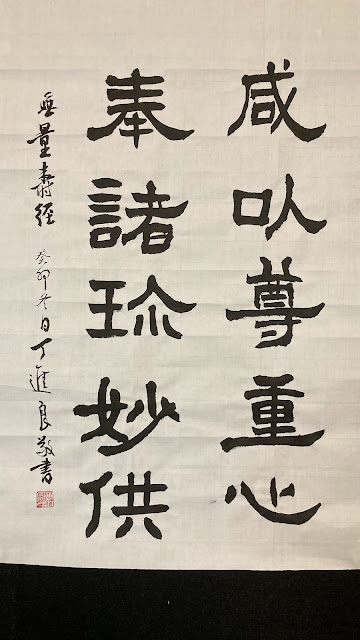 咸以尊重心
奉諸珎妙供
無量壽經 癸卯冬日丁進良敬書